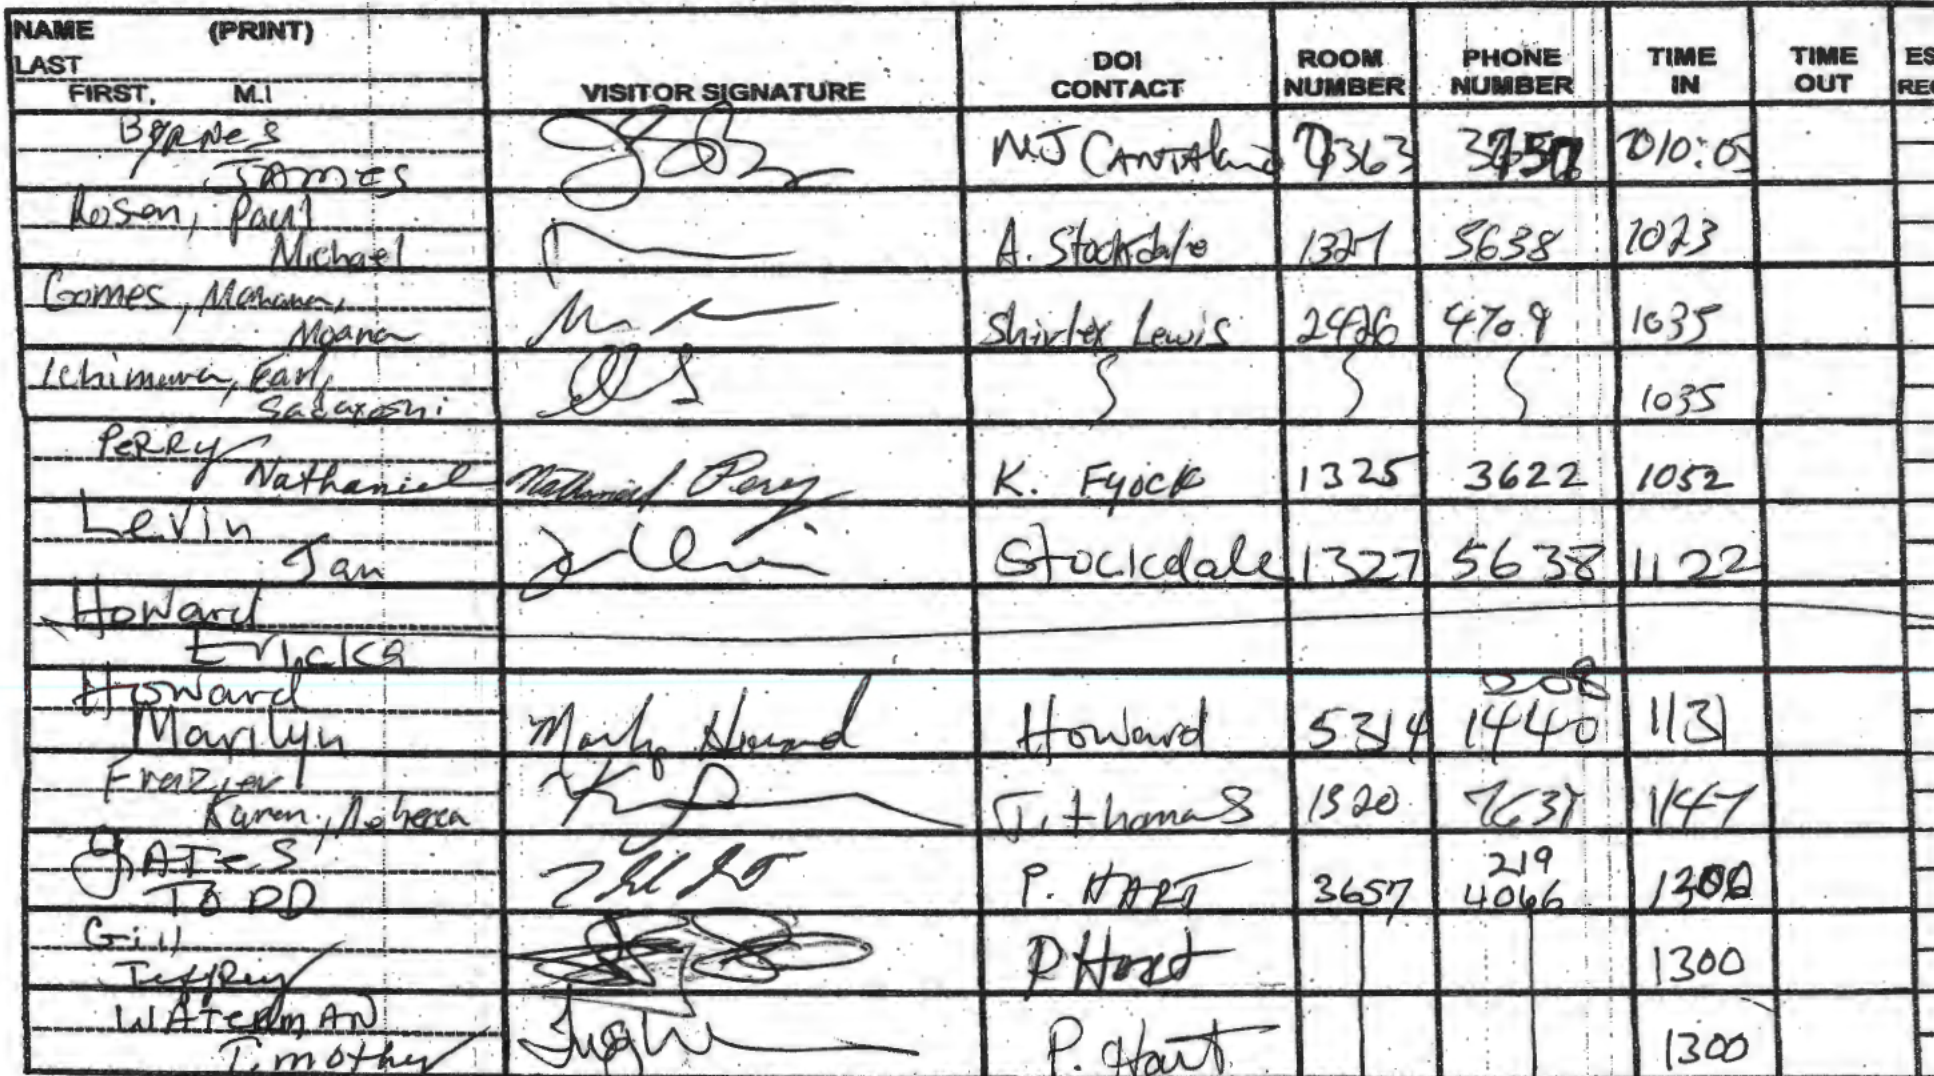 NAME (PRINT)
LAST
FIRST, M.I
VISITOR SIGNATURE
DOI CONTACT
ROOM NUMBER
PHONE NUMBER
TIME IN
TIME OUT
ES
REC
Byrnes
JAMES
MJ 7363 10:05
Rosen, Paul
Michael
A. Stockdale 1327 5638 1023
Gomes,
Moana
Shirley Lewis 2426 4709 1035
Ichimura, Earl,
1035
PERRY
Nathaniel
Nathaniel Perry K. Fyock 1325 3622 1052
Levin
Jan
Stockdale 1327 5638 1122
Howard
Ericka
Howard
Marilyn
Howard 5314 208 1440 1131
Frazier
Karen, Rebecca
J. Thomas 1320 1147
GATES
TODD
P. HART 3657 219 4066
Gill
Jeffrey
P Hart 1300
WATERMAN
Timothy
P. Hart 1300